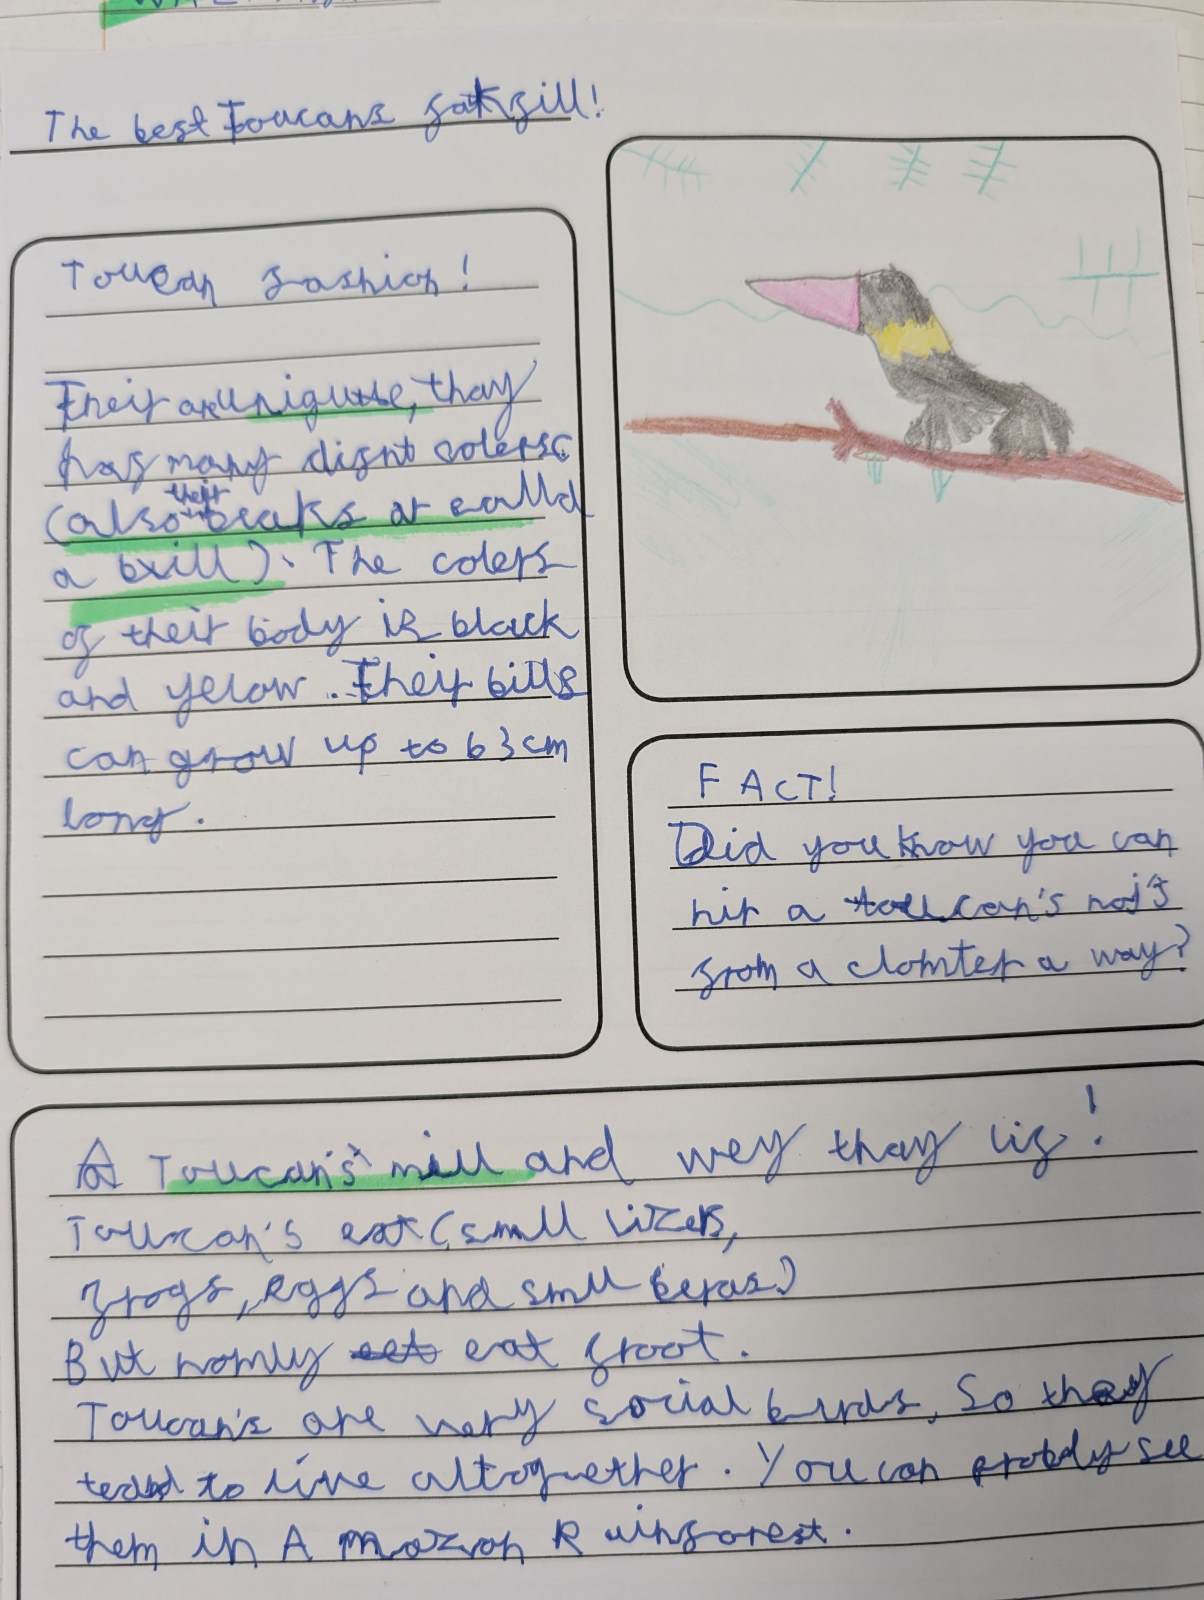 The best Toucans fatkfill!
Toucan fashion!
Their are unigute, thay
has many dignt colers
(also their beaks ar calld
a bill). The colers
of their body is black
and yelow. Their bills
can grow up to 63cm
long.
FACT!
Did you know you can
hir a toucan's nojs
from a clomter a way?
A Toucan's mill and wey thay lif!
Toucan's eat (small lizers,
frogs, eggs and smll beras)
But nomly eat froot.
Toucan's are very social burds, So they
tend to live altoguether. You can probdly see
them in Amazon Rainforest.